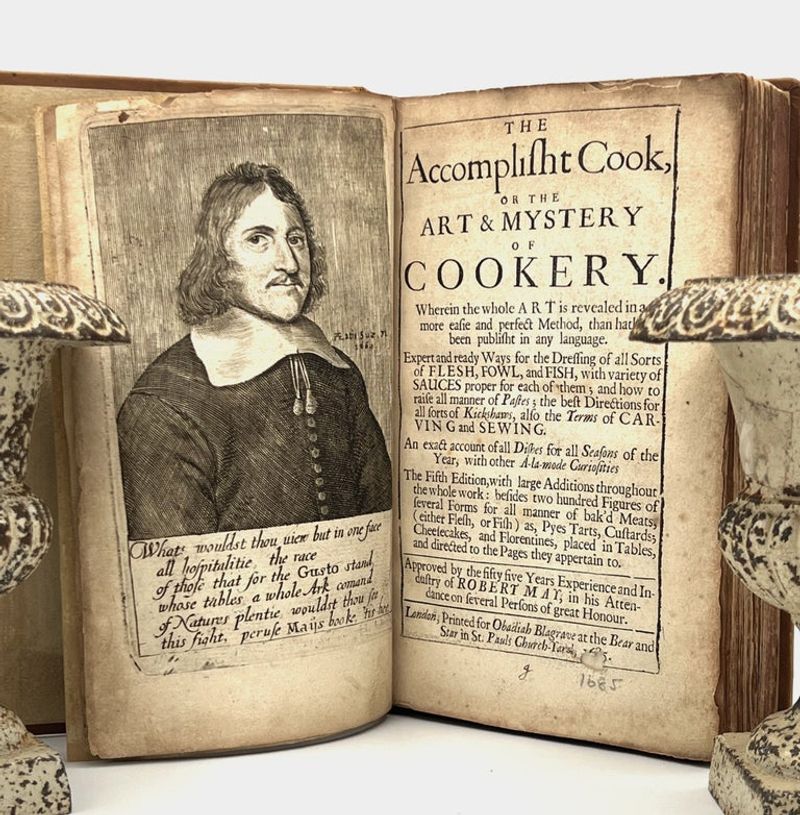 Ætatis Suæ 71
1660
What? wouldst thou view but in one face
all hospitalitie, the race
of those that for the Gusto stand,
whose tables a whole Ark comand
of Natures plentie, wouldst thou see
this sight, peruse Maijs booke, 'tis hee
THE
Accompliſht Cook,
OR THE
ART & MYSTERY
OF
COOKERY.
Wherein the whole ART is revealed in a
more eaſie and perfect Method, than hath
been publiſht in any language.
Expert and ready Ways for the Dreſſing of all Sorts
of FLESH, FOWL, and FISH, with variety of
SAUCES proper for each of them; and how to
raiſe all manner of Paſtes; the beſt Directions for
all ſorts of Kickſhaws, alſo the Terms of CAR-
VING and SEWING.
An exact account of all Diſhes for all Seaſons of the
Year, with other A-la-mode Curioſities
The Fifth Edition, with large Additions throughout
the whole work: beſides two hundred Figures of
ſeveral Forms for all manner of bak'd Meats,
(either Fleſh, or Fiſh) as, Pyes Tarts, Cuſtards;
Cheeſecakes, and Florentines, placed in Tables,
and directed to the Pages they appertain to.
Approved by the fifty five Years Experience and In-
duſtry of ROBERT MAY, in his Atten-
dance on ſeveral Perſons of great Honour.
London, Printed for Obadiah Blagrave at the Bear and
Star in St. Pauls Church-Yard, 1685.
1685